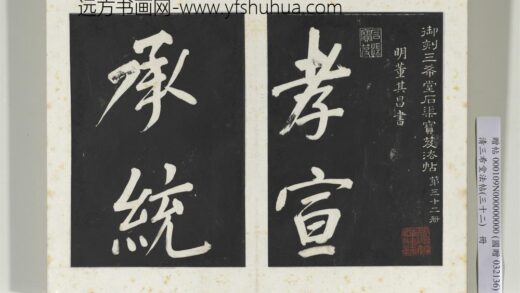 远方书画网-www.yfshuhua.com
御刻三希堂石渠寶笈法帖第三十二冊
明董其昌書
孝宣
承統
贈帖 000109N000000000 (國贈 032136)
清三希堂法帖(三十二) 冊